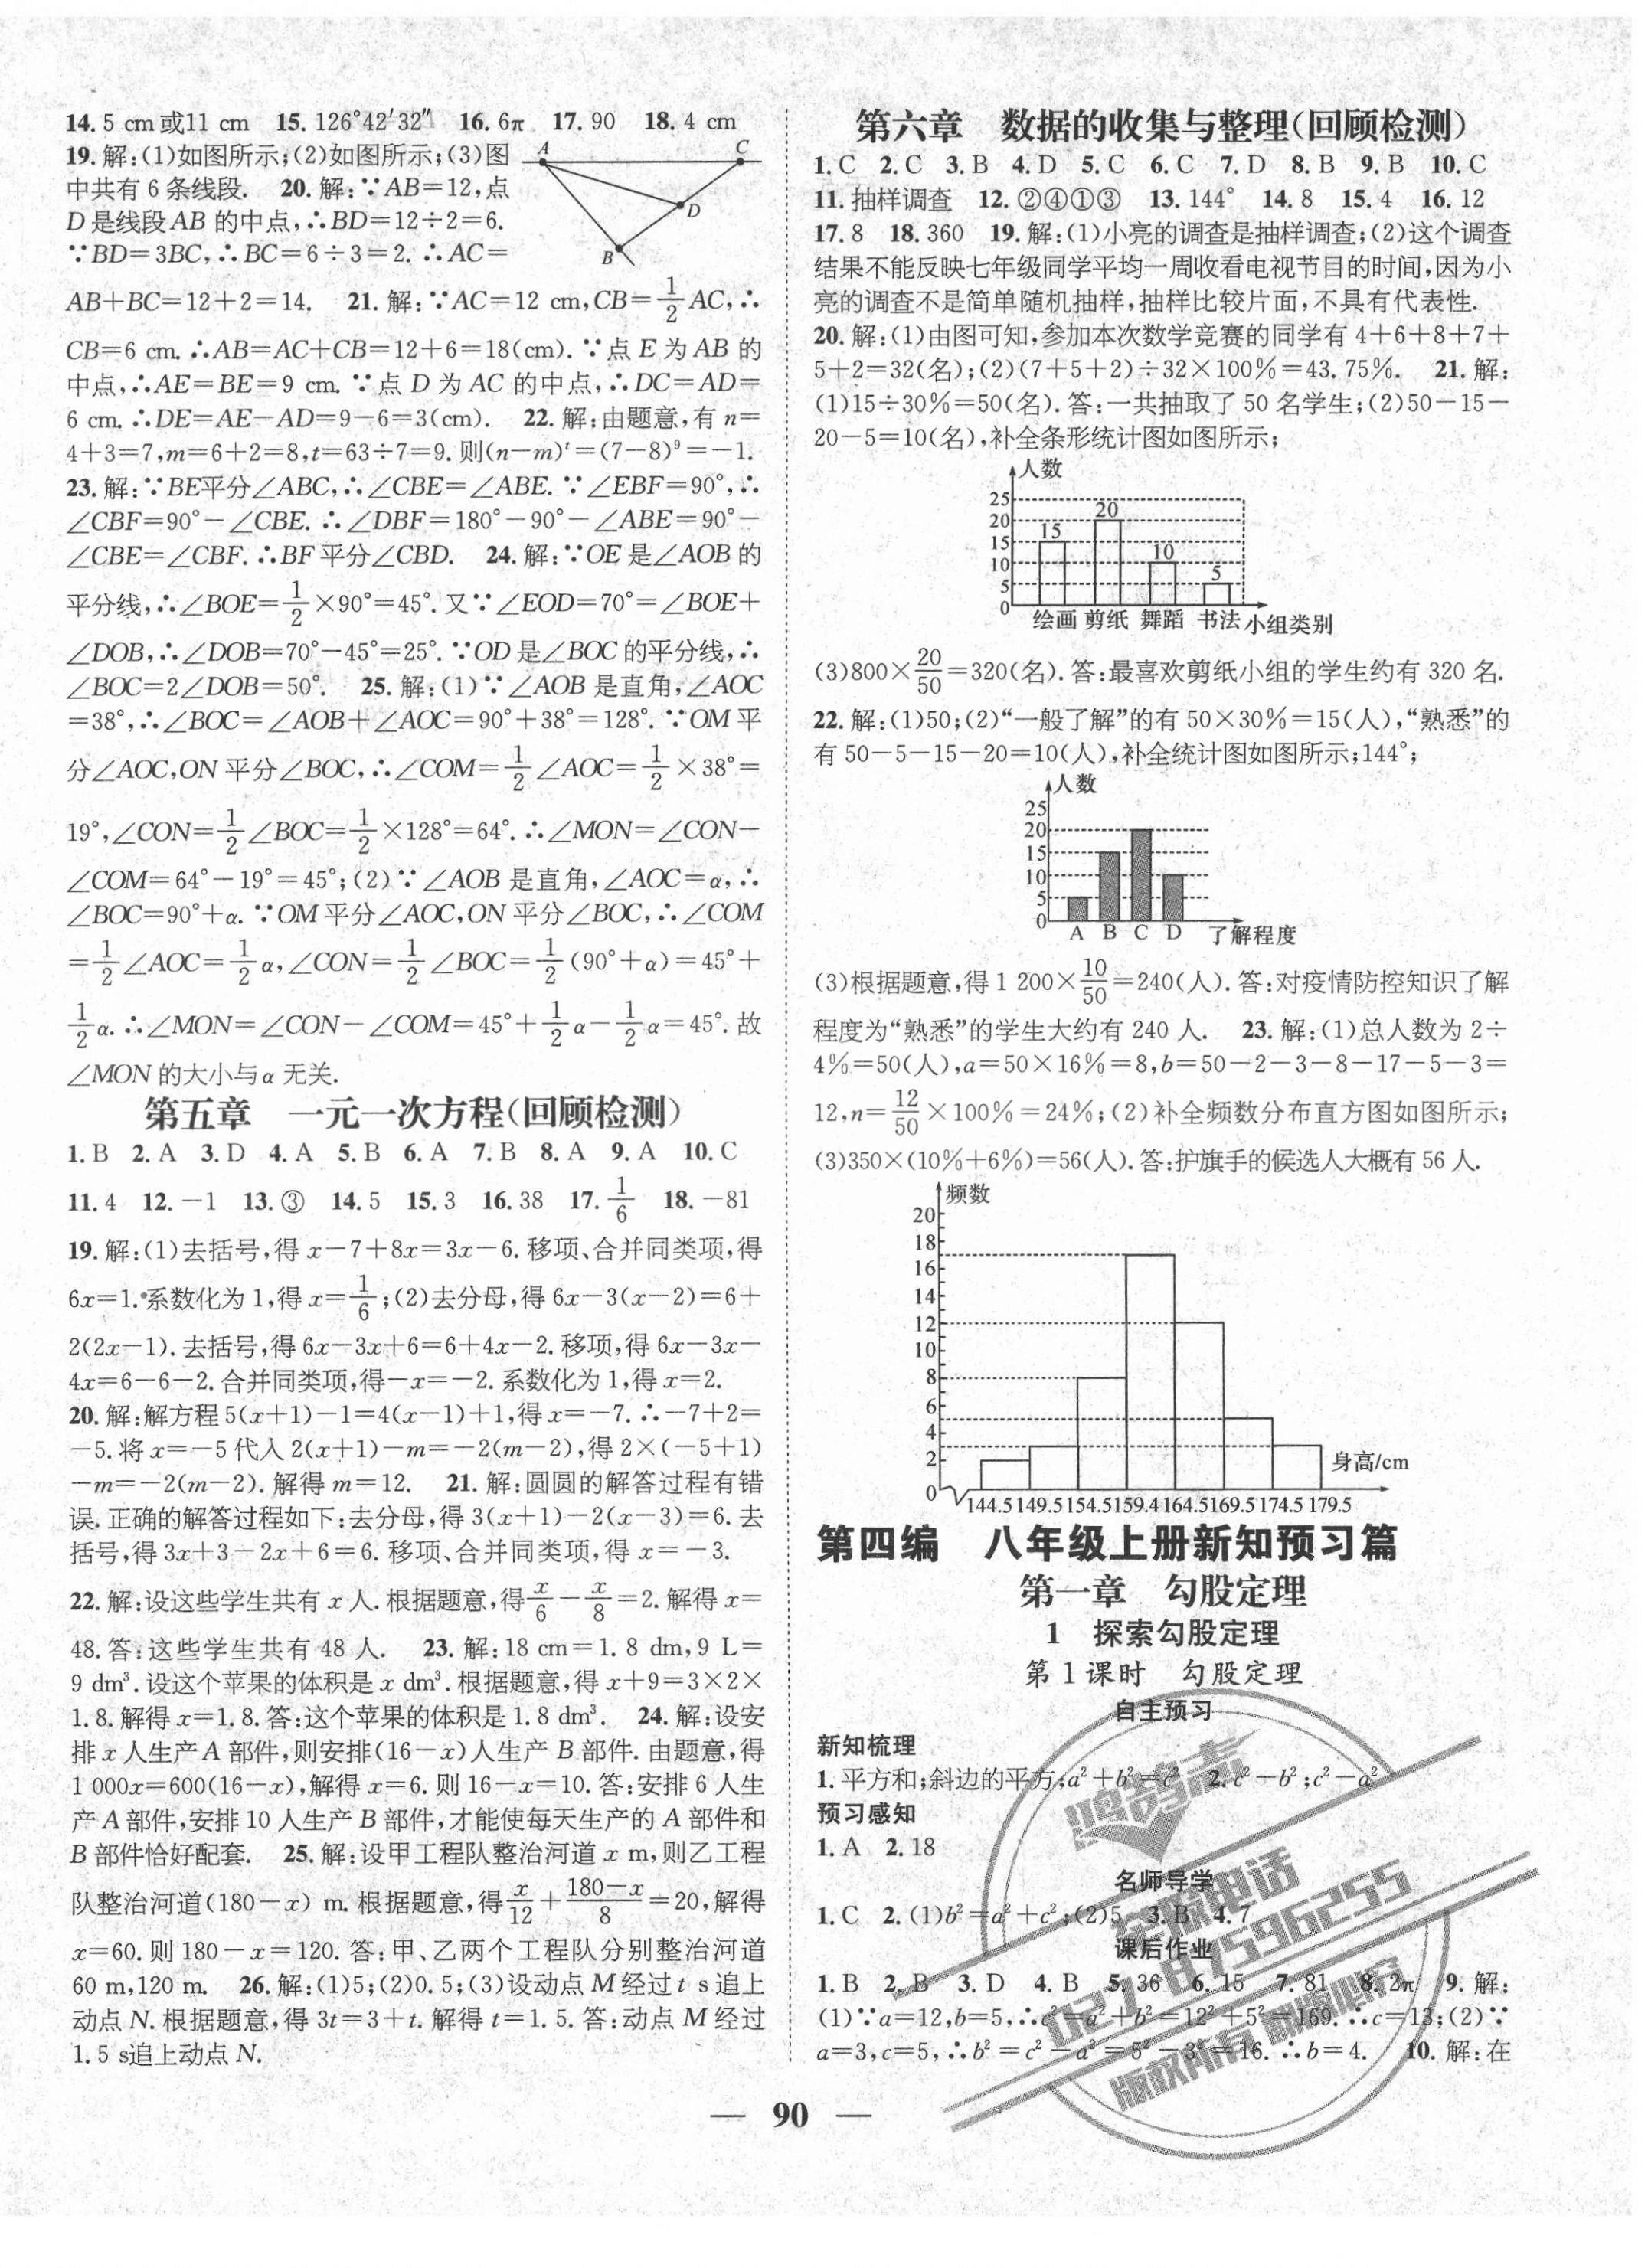 14. 5 cm或11 cm 15. 126°42′32″ 16. 6π 17. 90 18. 4 cm
19. 解:(1)如图所示;(2)如图所示;(3)图
中共有 6 条线段. 20. 解:∵AB=12,点
D 是线段 AB 的中点,∴BD=12÷2=6.
∵BD=3BC,∴BC=6÷3=2. ∴AC=
A
C
D
B
AB+BC=12+2=14. 21. 解:∵AC=12 cm,CB=1/2 AC,∴
CB=6 cm. ∴AB=AC+CB=12+6=18(cm). ∵点 E 为 AB 的
中点,∴AE=BE=9 cm. ∵点 D 为 AC 的中点,∴DC=AD=
6 cm. ∴DE=AE-AD=9-6=3(cm). 22. 解:由题意,有 n=
4+3=7,m=6+2=8,t=63÷7=9. 则(n-m)^t=(7-8)⁹=-1.
23. 解:∵BE平分∠ABC,∴∠CBE=∠ABE. ∵∠EBF=90°,∴
∠CBF=90°-∠CBE. ∴∠DBF=180°-90°-∠ABE=90°-
∠CBE=∠CBF. ∴BF 平分∠CBD. 24. 解:∵OE 是∠AOB 的
平分线,∴∠BOE=1/2×90°=45°. 又∵∠EOD=70°=∠BOE+
∠DOB,∴∠DOB=70°-45°=25°. ∵OD 是∠BOC 的平分线,∴
∠BOC=2∠DOB=50°. 25. 解:(1)∵∠AOB 是直角,∠AOC
=38°,∴∠BOC=∠AOB+∠AOC=90°+38°=128°. ∵OM 平
分∠AOC,ON 平分∠BOC,∴∠COM=1/2∠AOC=1/2×38°=
19°,∠CON=1/2∠BOC=1/2×128°=64°. ∴∠MON=∠CON-
∠COM=64°-19°=45°;(2)∵∠AOB 是直角,∠AOC=α,∴
∠BOC=90°+α. ∵OM 平分∠AOC,ON 平分∠BOC,∴∠COM
=1/2∠AOC=1/2α,∠CON=1/2∠BOC=1/2(90°+α)=45°+
1/2α. ∴∠MON=∠CON-∠COM=45°+1/2α-1/2α=45°. 故
∠MON 的大小与 α 无关.
第五章 一元一次方程(回顾检测)
1. B 2. A 3. D 4. A 5. B 6. A 7. B 8. A 9. A 10. C
11. 4 12. -1 13. ③ 14. 5 15. 3 16. 38 17. 1/6 18. -81
19. 解:(1)去括号,得 x-7+8x=3x-6. 移项、合并同类项,得
6x=1. 系数化为 1,得 x=1/6;(2)去分母,得 6x-3(x-2)=6+
2(2x-1). 去括号,得 6x-3x+6=6+4x-2. 移项,得 6x-3x-
4x=6-6-2. 合并同类项,得-x=-2. 系数化为 1,得 x=2.
20. 解:解方程 5(x+1)-1=4(x-1)+1,得 x=-7. ∴-7+2=
-5. 将 x=-5 代入 2(x+1)-m=-2(m-2),得 2×(-5+1)
-m=-2(m-2). 解得 m=12. 21. 解:圆圆的解答过程有错
误. 正确的解答过程如下:去分母,得 3(x+1)-2(x-3)=6. 去
括号,得 3x+3-2x+6=6. 移项、合并同类项,得 x=-3.
22. 解:设这些学生共有 x 人. 根据题意,得x/6-x/8=2. 解得 x=
48. 答:这些学生共有 48 人. 23. 解:18 cm=1.8 dm,9 L=
9 dm³. 设这个苹果的体积是 x dm³. 根据题意,得 x+9=3×2×
1.8. 解得 x=1.8. 答:这个苹果的体积是 1.8 dm³. 24. 解:设安
排 x 人生产 A 部件,则安排(16-x)人生产 B 部件. 由题意,得
1 000x=600(16-x),解得 x=6. 则 16-x=10. 答:安排 6 人生
产 A 部件,安排 10 人生产 B 部件,才能使每天生产的 A 部件和
B 部件恰好配套. 25. 解:设甲工程队整治河道 x m,则乙工程
队整治河道(180-x) m. 根据题意,得x/12+(180-x)/8=20,解得
x=60. 则 180-x=120. 答:甲、乙两个工程队分别整治河道
60 m,120 m. 26. 解:(1)5;(2)0.5;(3)设动点 M 经过 t s追上
动点 N. 根据题意,得 3t=3+t. 解得 t=1.5. 答:动点 M 经过
1.5 s追上动点 N.
第六章 数据的收集与整理(回顾检测)
1. C 2. C 3. B 4. D 5. C 6. C 7. D 8. B 9. B 10. C
11. 抽样调查 12. ②④①③ 13. 144° 14. 8 15. 4 16. 12
17. 8 18. 360 19. 解:(1)小亮的调查是抽样调查;(2)这个调查
结果不能反映七年级同学平均一周收看电视节目的时间,因为小
亮的调查不是简单随机抽样,抽样比较片面,不具有代表性.
20. 解:(1)由图可知,参加本次数学竞赛的同学有 4+6+8+7+
5+2=32(名);(2)(7+5+2)÷32×100%=43.75%. 21. 解:
(1)15÷30%=50(名). 答:一共抽取了 50 名学生;(2)50-15-
20-5=10(名),补全条形统计图如图所示;
人数
25
20
15
10
5
0
15
20
10
5
绘画 剪纸 舞蹈 书法 小组类别
(3)800×20/50=320(名). 答:最喜欢剪纸小组的学生约有 320 名.
22. 解:(1)50;(2)“一般了解”的有 50×30%=15(人),“熟悉”的
有 50-5-15-20=10(人),补全统计图如图所示;144°;
人数
25
20
15
10
5
0
A B C D 了解程度
(3)根据题意,得 1 200×10/50=240(人). 答:对疫情防控知识了解
程度为“熟悉”的学生大约有 240 人. 23. 解:(1)总人数为 2÷
4%=50(人),a=50×16%=8,b=50-2-3-8-17-5-3=
12,n=12/50×100%=24%;(2)补全频数分布直方图如图所示;
(3)350×(10%+6%)=56(人). 答:护旗手的候选人大概有 56 人.
频数
20
18
16
14
12
10
8
6
4
2
0
身高/cm
144.5 149.5 154.5 159.4 164.5 169.5 174.5 179.5
第四编 八年级上册新知预习篇
第一章 勾股定理
1 探索勾股定理
第 1 课时 勾股定理
自主预习
新知梳理
1. 平方和;斜边的平方;a²+b²=c² 2. c²-b²;c²-a²
预习感知
1. A 2. 18
名师导学
1. C 2. (1)b²=a²+c²;(2)5 3. B 4. 7
课后作业
1. B 2. B 3. D 4. B 5. 36 6. 15 7. 81 8. 2π 9. 解:
(1)∵a=12,b=5,∴c²=a²+b²=12²+5²=169. ∴c=13;(2)∵
a=3,c=5,∴b²=c²-a²=5²-3²=16. ∴b=4. 10. 解:在
鸿鹄志
电话
027-87596255
版权所有 翻印必究
— 90 —